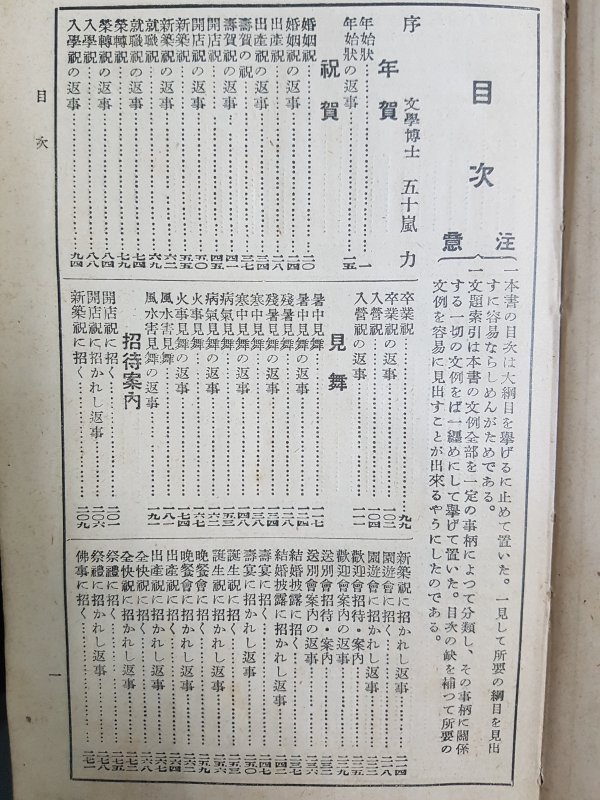 目次
注意
一本書の目次は大綱目を擧げるに止めて置いた。一見して所要の綱目を見出
すに容易ならしめんがためである。
一文題索引は本書の文例全部を一定の事柄によつて分類し、その事柄に關係
する一切の文例をば一纏めにして擧げて置いた。目次の缺を補つて所要の
文例を容易に見出すことが出來るやうにしたのである。
序 文學博士 五十嵐 力
年賀
年始狀…………一
年始狀の返事…………一五
祝賀
婚姻祝…………二〇
婚姻祝の返事…………二四
出產祝…………二八
出產祝の返事…………三四
壽賀の祝…………三七
壽賀祝の返事…………四一
開店祝…………四五
開店祝の返事…………五〇
新築祝…………五五
新築祝の返事…………六二
就職祝…………六九
就職祝の返事…………七四
榮轉祝…………七九
榮轉祝の返事…………八四
入學祝…………八八
入學祝の返事…………九四
卒業祝…………九九
卒業祝の返事…………一〇二
入營祝…………一〇四
入營祝の返事…………一一一
見舞
暑中見舞…………一一七
暑中見舞の返事…………一二四
殘暑見舞…………一二八
殘暑見舞の返事…………一三四
寒中見舞…………一三八
寒中見舞の返事…………一四八
病氣見舞…………一五三
病氣見舞の返事…………一六二
火事見舞…………一六七
火事見舞の返事…………一七四
風水害見舞…………一八一
風水害見舞の返事…………一九一
招待案內
開店祝に招く…………二〇一
開店祝に招かれし返事…………二〇六
新築祝に招く…………二〇九
新築祝に招かれし返事…………二一四
園遊會に招く…………二一八
園遊會に招かれし返事…………二二三
歡迎會招待・案內…………二二五
歡迎會案內の返事…………二二九
送別會招待・案內…………二三二
送別會案內の返事…………二三六
結婚披露に招く…………二三七
結婚披露に招かれし返事…………二四二
壽宴に招く…………二四七
壽宴に招かれし返事…………二五〇
誕生祝に招く…………二五三
誕生祝に招かれし返事…………二五六
晚餐會に招く…………二五九
晚餐會に招かれし返事…………二六二
出產祝に招く…………二六四
出產祝に招かれし返事…………二六六
全快祝に招く…………二六八
全快祝に招かれし返事…………二七三
祭禮に招く…………二七五
祭禮に招かれし返事…………二七八
佛事に招く…………二七一
目次
一